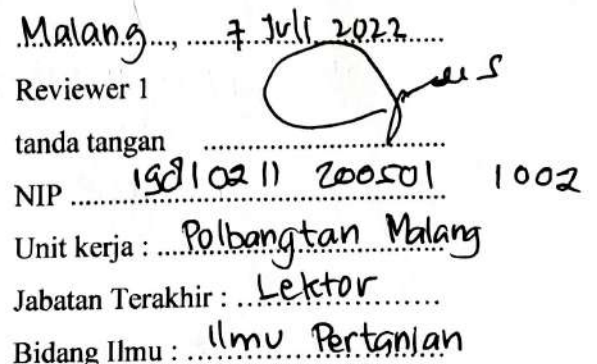 Malang, 7 Juli 2022
Reviewer 1
tanda tangan
NIP 19810211 200501 1002
Unit kerja : Polbangtan Malang
Jabatan Terakhir : Lektor
Bidang Ilmu : Ilmu Pertanian